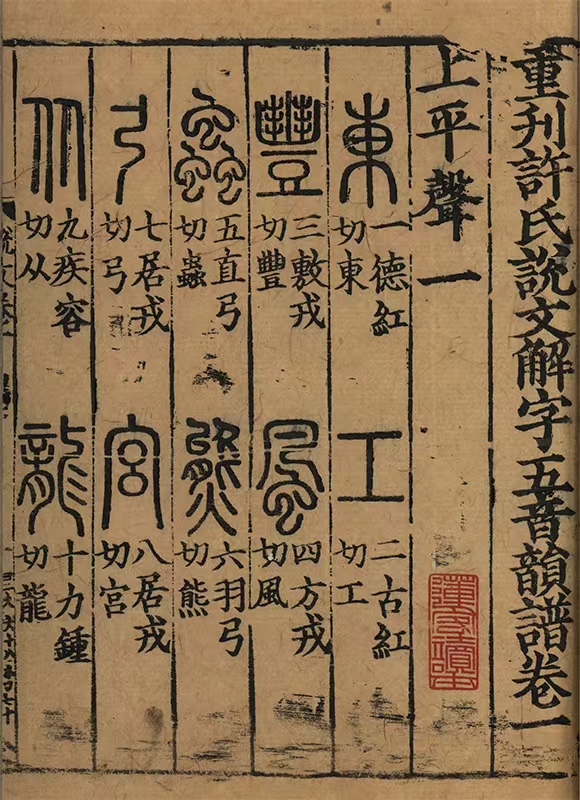 重刊許氏說文解字五音韻譜卷一
上平聲一
東 一德紅切東 工 二古紅切工
豐 三敷戎切豐 風 四方戎切風
蟲 五直弓切蟲 熊 六羽弓切熊
弓 七居戎切弓 宮 八居戎切宮
从 九疾容切从 龍 十力鍾切龍